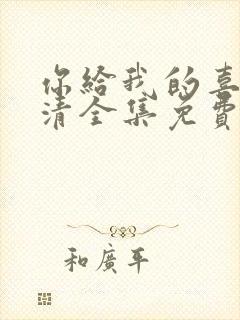 你給我的喜
清全集免費
和廣平